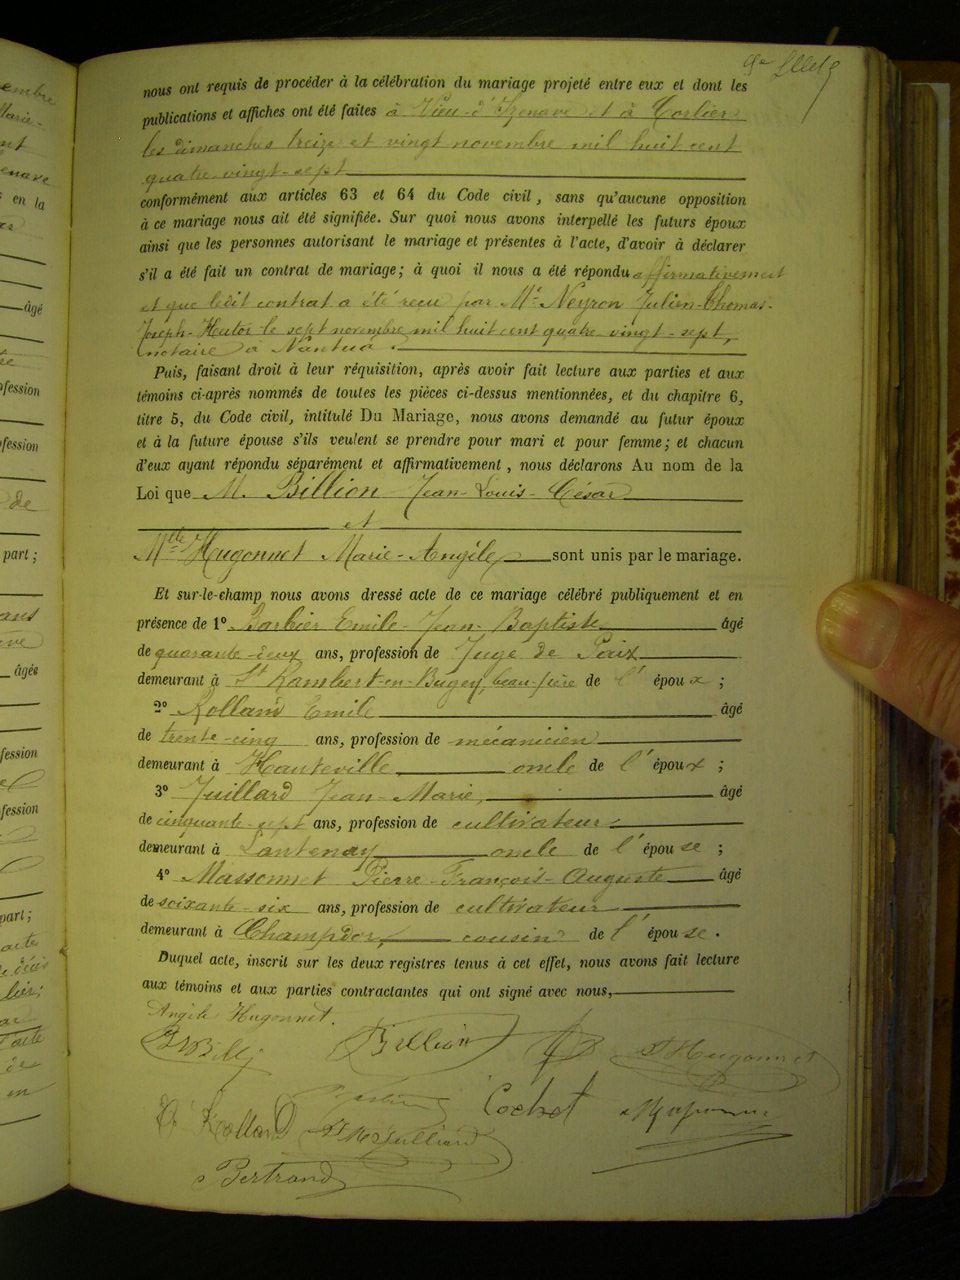 nous ont requis de procéder à la célébration du mariage projeté entre eux et dont les
publications et affiches ont été faites à Vieu-d'Izenave et à Corlier
les dimanches treize et vingt novembre mil huit cent
quatre-vingt-sept
conformément aux articles 63 et 64 du Code civil, sans qu'aucune opposition
à ce mariage nous ait été signifiée. Sur quoi nous avons interpellé les futurs époux
ainsi que les personnes autorisant le mariage et présentes à l'acte, d'avoir à déclarer
s'il a été fait un contrat de mariage; à quoi il nous a été répondu affirmativement
et que ledit contrat a été recu par Me Neyron Julien-Thomas-
Joseph-Hector le sept novembre mil huit cent quatre-vingt-sept,
notaire à Nantua.
Puis, faisant droit à leur réquisition, après avoir fait lecture aux parties et aux
témoins ci-après nommés de toutes les pièces ci-dessus mentionnées, et du chapitre 6,
titre 5, du Code civil, intitulé Du Mariage, nous avons demandé au futur époux
et à la future épouse s'ils veulent se prendre pour mari et pour femme; et chacun
d'eux ayant répondu séparément et affirmativement, nous déclarons Au nom de la
Loi que M. Billion Jean-Louis-César
et
Mlle Hugonnet Marie-Angèle sont unis par le mariage.
Et sur-le-champ nous avons dressé acte de ce mariage célébré publiquement et en
présence de 1° Barbier Emile-Jean-Baptiste âgé
de quarante-deux ans, profession de Juge de Paix
demeurant à St Rambert-en-Bugey, beau-frère de l'époux;
2° Rolland Emile âgé
de trente-cinq ans, profession de mécanicien
demeurant à Hauteville oncle de l'époux;
3° Juillard Jean-Marie, âgé
de cinquante-sept ans, profession de cultivateur
demeurant à Lantenay oncle de l'épouse;
4° Massonnet Pierre-François-Auguste âgé
de soixante-six ans, profession de cultivateur
demeurant à Champdor, cousin de l'épouse.
Duquel acte, inscrit sur les deux registres tenus à cet effet, nous avons fait lecture
aux témoins et aux parties contractantes qui ont signé avec nous,
Angèle Hugonnet.
Billion Hugonnet
Cochet
Rolland Juilliard
Bertrand